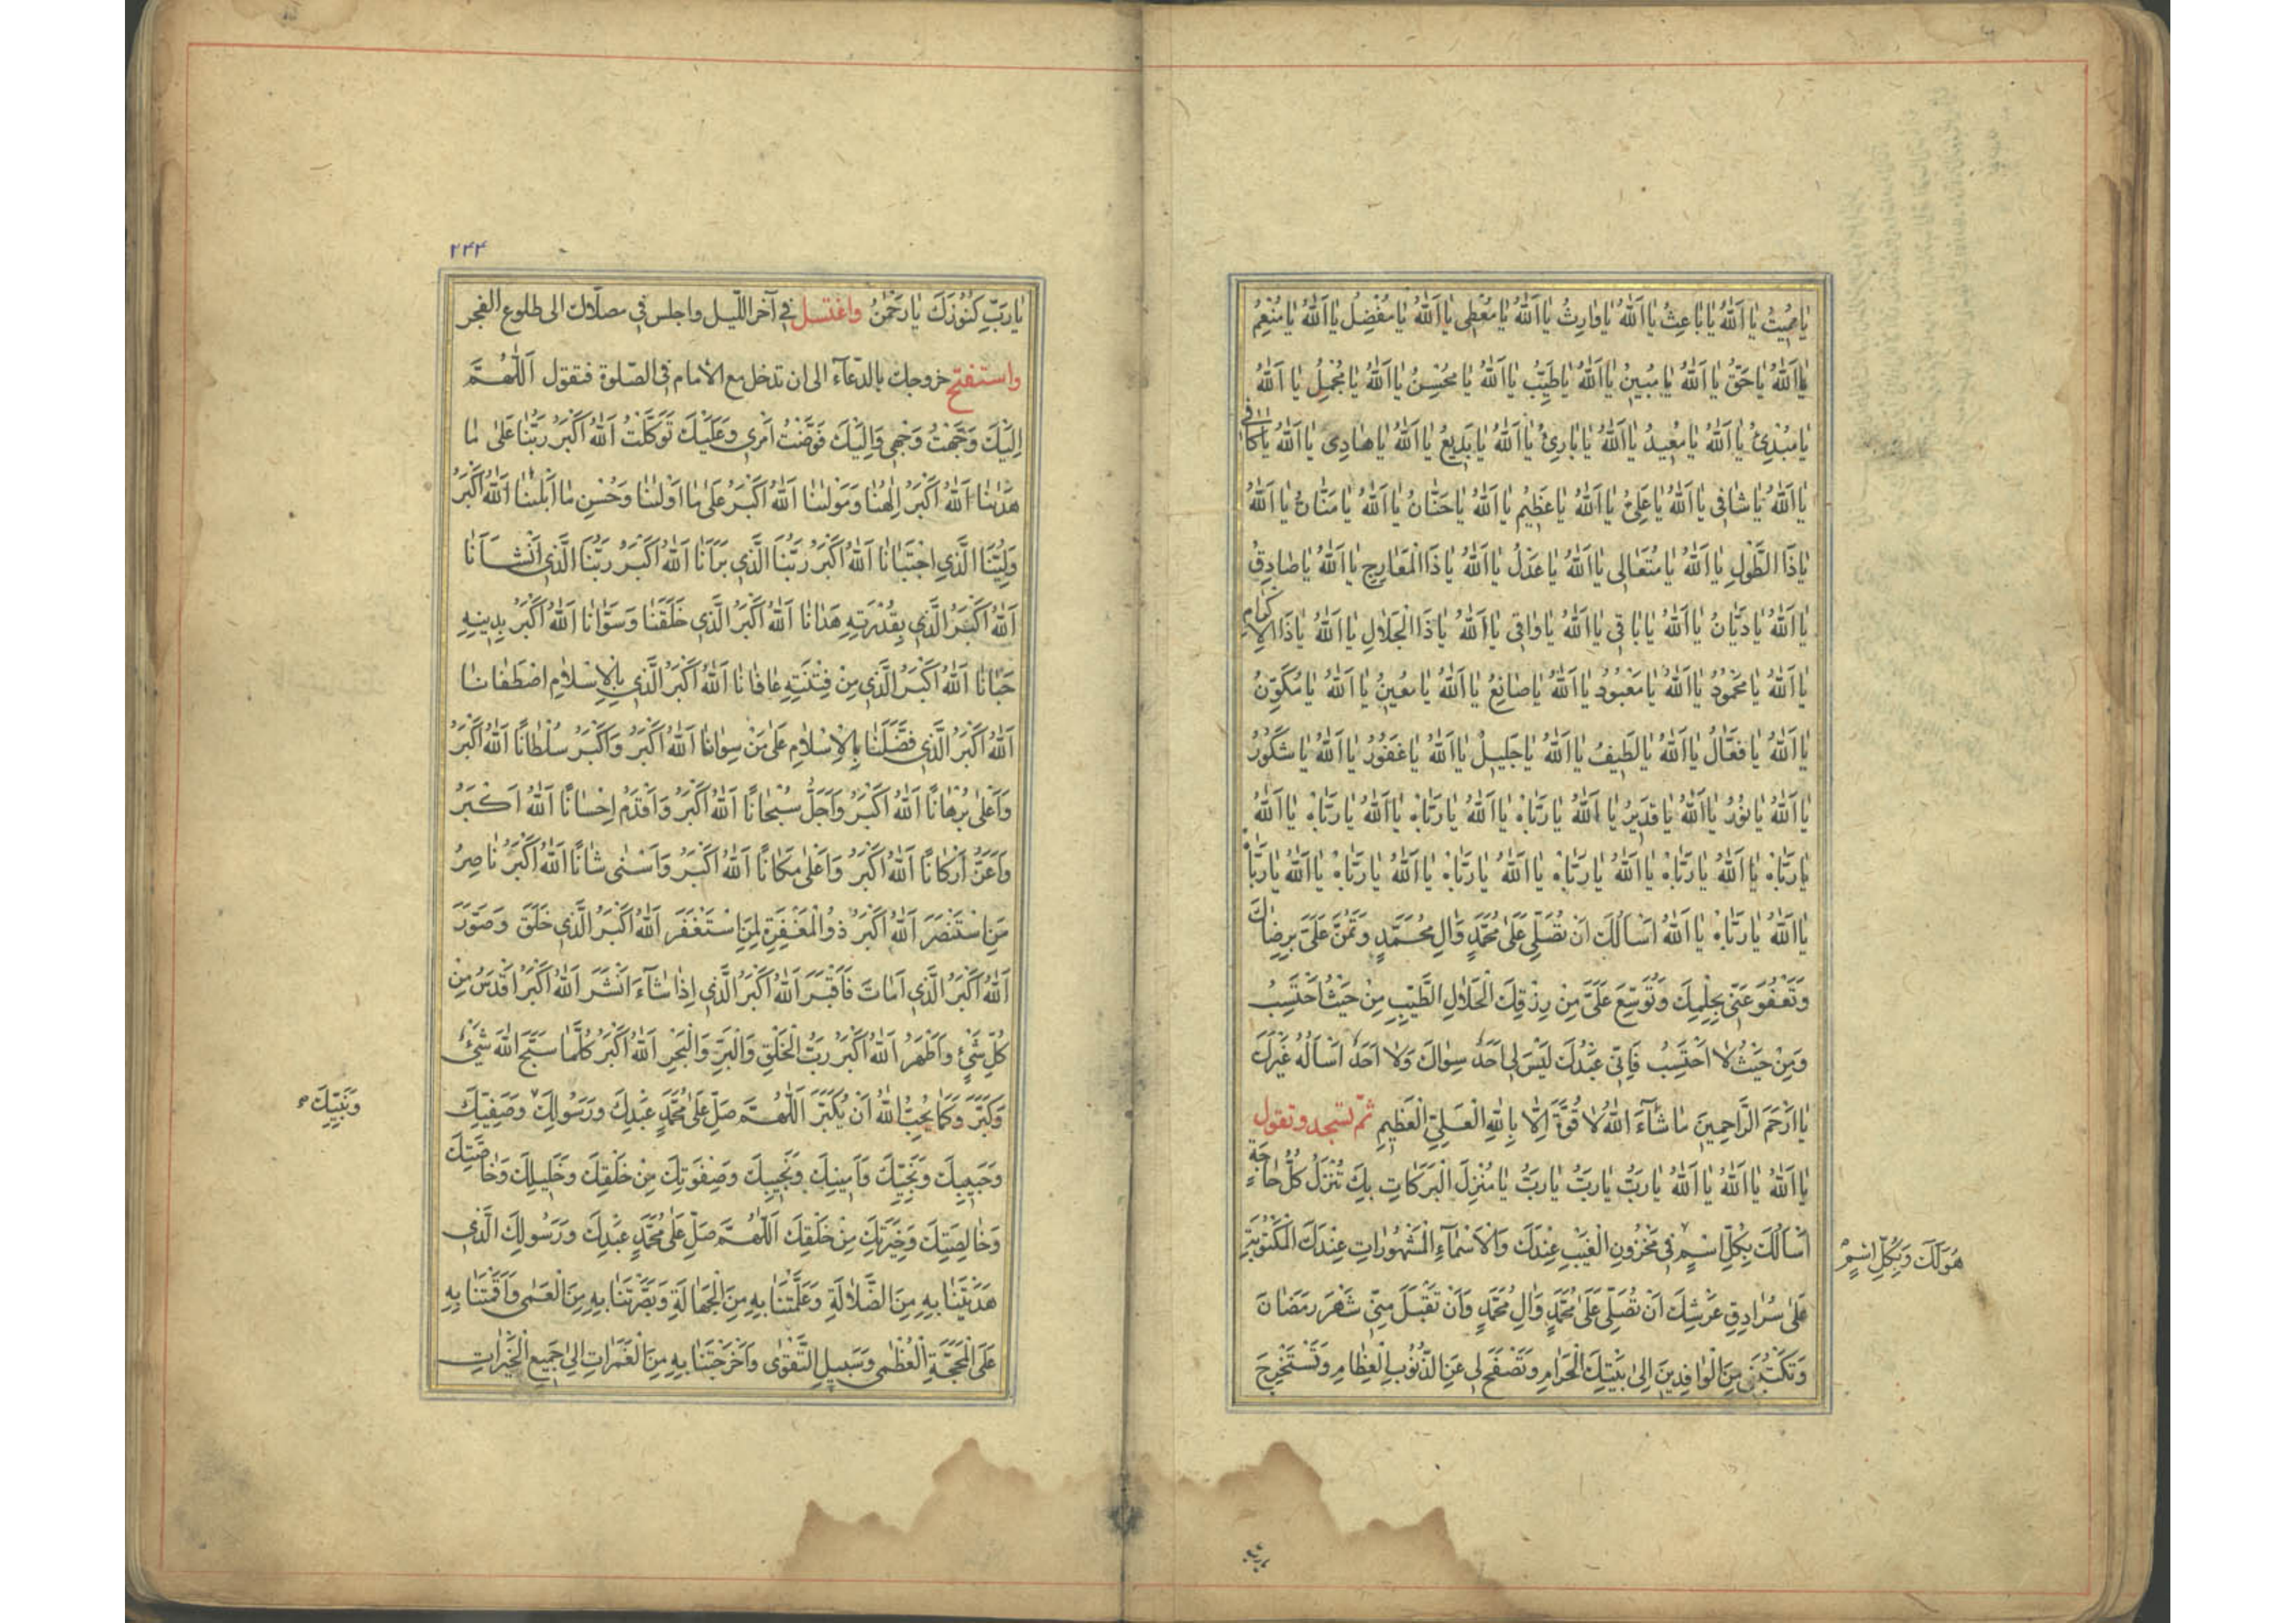 يَا مُمِيتُ يَا اَللّٰهُ يَا بَاعِثُ يَا اَللّٰهُ يَا وَارِثُ يَا اَللّٰهُ يَا مُعْطِى يَا اَللّٰهُ يَا مُفْضِلُ يَا اَللّٰهُ يَا مُنْعِمُ
يَا اَللّٰهُ يَا حَقُّ يَا اَللّٰهُ يَا مُبِينُ يَا اَللّٰهُ يَا طَيِّبُ يَا اَللّٰهُ يَا مُحْسِنُ يَا اَللّٰهُ يَا مُجْمِلُ يَا اَللّٰهُ
يَا مُبْدِئُ يَا اَللّٰهُ يَا مُعِيدُ يَا اَللّٰهُ يَا بَارِئُ يَا اَللّٰهُ يَا بَدِيعُ يَا اَللّٰهُ يَا هَادِى يَا اَللّٰهُ يَا كَافِى
يَا اَللّٰهُ يَا شَافِى يَا اَللّٰهُ يَا عَلِىُّ يَا اَللّٰهُ يَا عَظِيمُ يَا اَللّٰهُ يَا حَنَّانُ يَا اَللّٰهُ يَا مَنَّانُ يَا اَللّٰهُ
يَا ذَا الطَّوْلِ يَا اَللّٰهُ يَا مُتَعَالِى يَا اَللّٰهُ يَا عَدْلُ يَا اَللّٰهُ يَا ذَا الْمَعَارِجِ يَا اَللّٰهُ يَا صَادِقُ
يَا اَللّٰهُ يَا دَيَّانُ يَا اَللّٰهُ يَا بَاقِى يَا اَللّٰهُ يَا وَاقِى يَا اَللّٰهُ يَا ذَا الْجَلَالِ يَا اَللّٰهُ يَا ذَا الْاِكْرَامِ
يَا اَللّٰهُ يَا مَحْمُودُ يَا اَللّٰهُ يَا مَعْبُودُ يَا اَللّٰهُ يَا صَانِعُ يَا اَللّٰهُ يَا مُعِينُ يَا اَللّٰهُ يَا مُكَوِّنُ
يَا اَللّٰهُ يَا فَعَّالُ يَا اَللّٰهُ يَا لَطِيفُ يَا اَللّٰهُ يَا جَلِيلُ يَا اَللّٰهُ يَا غَفُورُ يَا اَللّٰهُ يَا شَكُورُ
يَا اَللّٰهُ يَا نُورُ يَا اَللّٰهُ يَا قَدِيرُ يَا اَللّٰهُ يَا رَبَّاهُ يَا اَللّٰهُ يَا رَبَّاهُ يَا اَللّٰهُ يَا رَبَّاهُ يَا اَللّٰهُ
يَا رَبَّاهُ يَا اَللّٰهُ يَا رَبَّاهُ يَا اَللّٰهُ يَا رَبَّاهُ يَا اَللّٰهُ يَا رَبَّاهُ يَا اَللّٰهُ يَا رَبَّاهُ يَا اَللّٰهُ يَا رَبَّاهُ
يَا اَللّٰهُ يَا رَبَّاهُ يَا اَللّٰهُ اَسْاَلُكَ اَنْ تُصَلِّىَ عَلَى مُحَمَّدٍ وَالِ مُحَمَّدٍ وَتَمُنَّ عَلَىَّ بِرِضَاكَ
وَتَعْفُوَ عَنِّى بِحِلْمِكَ وَتُوَسِّعَ عَلَىَّ مِنْ رِزْقِكَ الْحَلَالِ الطَّيِّبِ مِنْ حَيْثُ اَحْتَسِبُ
وَمِنْ حَيْثُ لَا اَحْتَسِبُ فَاِنِّى عَبْدُكَ لَيْسَ لِى اَحَدٌ سِوَاكَ وَلَا اَحَدٌ اَسْاَلُهُ غَيْرَكَ
يَا اَرْحَمَ الرَّاحِمِينَ مَا شَآءَ اللّٰهُ لَا قُوَّةَ اِلَّا بِاللّٰهِ الْعَلِىِّ الْعَظِيمِ ثمّ تسجد وتقول
يَا اَللّٰهُ يَا اَللّٰهُ يَا اَللّٰهُ يَا رَبُّ يَا رَبُّ يَا رَبُّ يَا مُنْزِلَ الْبَرَكَاتِ بِكَ تُنْزَلُ كُلُّ حَاجَةٍ
اَسْاَلُكَ بِكُلِّ اسْمٍ فِى مَخْزُونِ الْغَيْبِ عِنْدَكَ وَالْاَسْمَآءِ الْمَشْهُورَاتِ عِنْدَكَ الْمَكْتُوبَةِ
هُوَ لَكَ وَبِكُلِّ اسْمٍ
عَلَى سُرَادِقِ عَرْشِكَ اَنْ تُصَلِّىَ عَلَى مُحَمَّدٍ وَالِ مُحَمَّدٍ وَاَنْ تَقْبَلَ مِنِّى شَهْرَ رَمَضَانَ
وَتَكْتُبَنِى مِنَ الْوَافِدِينَ اِلَى بَيْتِكَ الْحَرَامِ وَتَصْفَحَ لِى عَنِ الذُّنُوبِ الْعِظَامِ وَتَسْتَخْرِجَ
۲۴۴
يَا رَبِّ كُنُوزَكَ يَا رَحْمٰنُ واغتسل فى آخر اللّيل واجلس فى مصلّاك الى طلوع الفجر
واستفتح خروجك بالدّعآء الى ان تدخل مع الامام فى الصّلوة فتقول اَللّٰهُمَّ
اِلَيْكَ وَجَّهْتُ وَجْهِى وَاِلَيْكَ فَوَّضْتُ اَمْرِى وَعَلَيْكَ تَوَكَّلْتُ اَللّٰهُ اَكْبَرُ رَبُّنَا عَلَى مَا
هَدٰينَا اَللّٰهُ اَكْبَرُ اِلٰهُنَا وَمَوْلٰينَا اَللّٰهُ اَكْبَرُ عَلَى مَا اَوْلٰينَا وَحُسْنِ مَا اَبْلٰينَا اَللّٰهُ اَكْبَرُ
وَلِيُّنَا الَّذِى اجْتَبَانَا اَللّٰهُ اَكْبَرُ رَبُّنَا الَّذِى بَرَاَنَا اَللّٰهُ اَكْبَرُ رَبُّنَا الَّذِى اَنْشَاَنَا
اَللّٰهُ اَكْبَرُ الَّذِى بِقُدْرَتِهِ هَدَانَا اَللّٰهُ اَكْبَرُ الَّذِى خَلَقَنَا وَسَوَّانَا اَللّٰهُ اَكْبَرُ بِدِينِهِ
حَبَانَا اَللّٰهُ اَكْبَرُ الَّذِى مِنْ فِتْنَتِهِ عَافَانَا اَللّٰهُ اَكْبَرُ الَّذِى بِالْاِسْلَامِ اصْطَفَانَا
اَللّٰهُ اَكْبَرُ الَّذِى فَضَّلَنَا بِالْاِسْلَامِ عَلَى مَنْ سِوَانَا اَللّٰهُ اَكْبَرُ وَاَكْبَرُ سُلْطَانًا اَللّٰهُ اَكْبَرُ
وَاَعْلَى بُرْهَانًا اَللّٰهُ اَكْبَرُ وَاَجَلُّ سُبْحَانًا اَللّٰهُ اَكْبَرُ وَاَقْدَمُ اِحْسَانًا اَللّٰهُ اَكْبَرُ
وَاَعَزُّ اَرْكَانًا اَللّٰهُ اَكْبَرُ وَاَعْلَى مَكَانًا اَللّٰهُ اَكْبَرُ وَاَسْنَى شَانًا اَللّٰهُ اَكْبَرُ نَاصِرُ
مَنِ اسْتَنْصَرَ اَللّٰهُ اَكْبَرُ ذُو الْمَغْفِرَةِ لِمَنِ اسْتَغْفَرَ اَللّٰهُ اَكْبَرُ الَّذِى خَلَقَ وَصَوَّرَ
اَللّٰهُ اَكْبَرُ الَّذِى اَمَاتَ فَاَقْبَرَ اَللّٰهُ اَكْبَرُ الَّذِى اِذَا شَآءَ اَنْشَرَ اَللّٰهُ اَكْبَرُ اَقْدَسُ مِنْ
كُلِّ شَىْءٍ وَاَظْهَرُ اَللّٰهُ اَكْبَرُ رَبُّ الْخَلْقِ وَالْبَرِّ وَالْبَحْرِ اَللّٰهُ اَكْبَرُ كُلَّمَا سَبَّحَ اللّٰهَ شَىْءٌ
وَكَبَّرَ وَكَمَا يُحِبُّ اللّٰهُ اَنْ يُكَبَّرَ اَللّٰهُمَّ صَلِّ عَلَى مُحَمَّدٍ عَبْدِكَ وَرَسُولِكَ وَصَفِيِّكَ
وَنَبِيِّكَ
وَحَبِيبِكَ وَنَجِيِّكَ وَاَمِينِكَ وَنَجِيبِكَ وَصِفْوَتِكَ مِنْ خَلْقِكَ وَخَلِيلِكَ وَخَاصَّتِكَ
وَخَالِصَتِكَ وَخِيَرَتِكَ مِنْ خَلْقِكَ اَللّٰهُمَّ صَلِّ عَلَى مُحَمَّدٍ عَبْدِكَ وَرَسُولِكَ الَّذِى
هَدَيْتَنَا بِهِ مِنَ الضَّلَالَةِ وَعَلَّمْتَنَا بِهِ مِنَ الْجَهَالَةِ وَبَصَّرْتَنَا بِهِ مِنَ الْعَمَى وَاَقَمْتَنَا بِهِ
عَلَى الْمَحَجَّةِ الْعُظْمَى وَسَبِيلِ التَّقْوَى وَاَخْرَجْتَنَا بِهِ مِنَ الْغَمَرَاتِ اِلَى جَمِيعِ الْخَيْرَاتِ